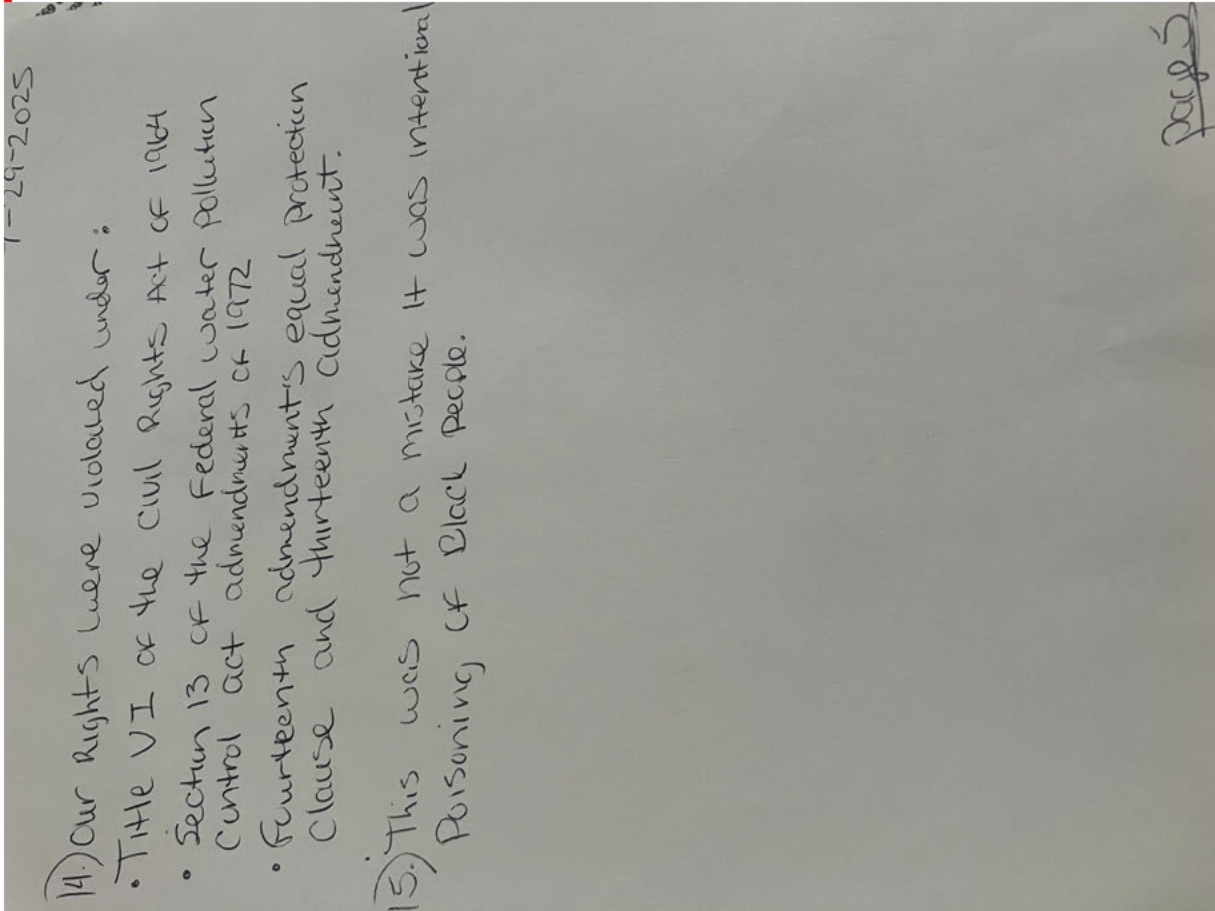 7-29-2025
14.) Our Rights were violated under:
• Title VI of the Civil Rights Act of 1964
• Section 13 of the Federal water pollution
Control act admendments of 1972
• Fourteenth admendment's equal protection
Clause and thirteenth admendment.
15.) This was not a mistake It was intentional
Poisoning of Black People.
page 5